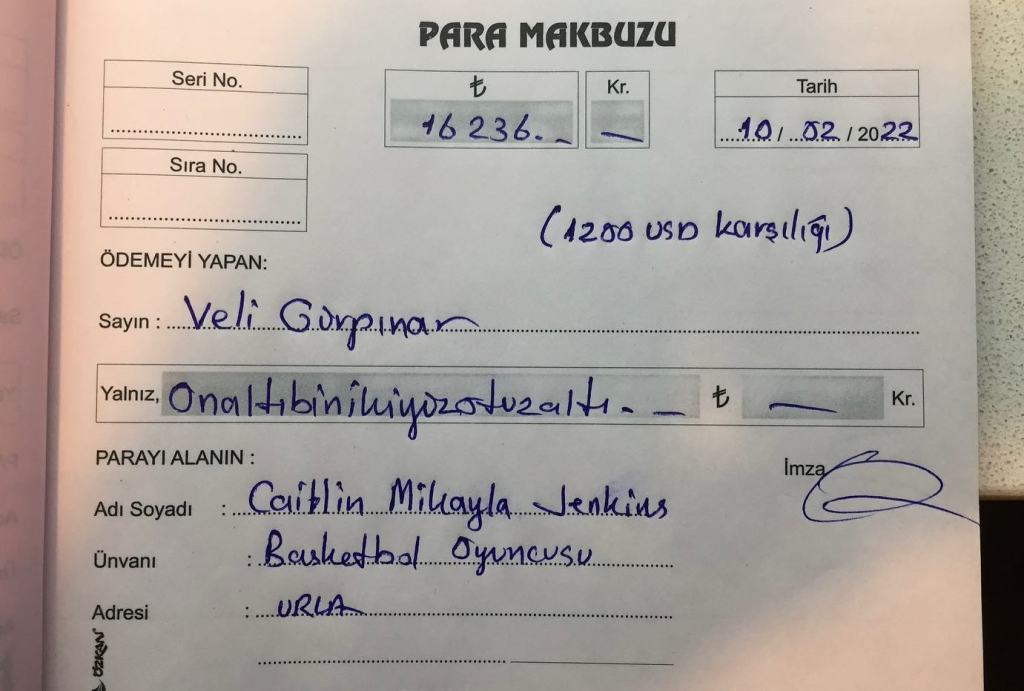 PARA MAKBUZU
Seri No.
₺ Kr.
Tarih
16 236.- —
10 / 02 / 2022
Sıra No.
(1200 USD karşılığı)
ÖDEMEYİ YAPAN:
Sayın : Veli Gürpınar
Yalnız, Onaltıbinikiyüzotuzaltı. — ₺ — Kr.
PARAYI ALANIN :
İmza
Adı Soyadı : Caitlin Mikayla Jenkins
Ünvanı : Basketbol Oyuncusu
Adresi : URLA
ÖZKAN